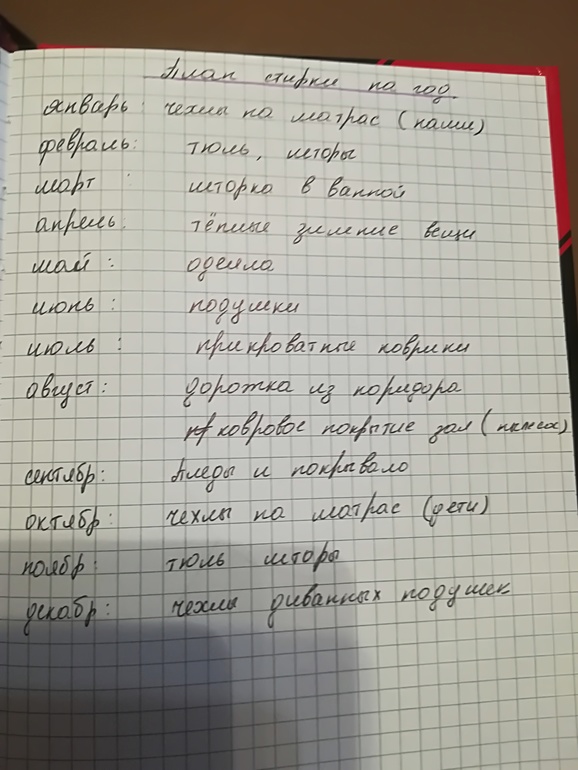 План стирки на год
январь: чехлы на матрас (нами)
февраль: тюль, шторы
март : шторка в ванной
апрель: тёплые зимние вещи
май : одеяла
июнь : подушки
июль : прикроватные коврики
август: дорожка из коридора
ковровое покрытие зал (
сентябр: пледы и покрывало
октябр: чехлы на матрас (дети)
ноябр: тюль шторы
декабр: чехлы диванных подушек